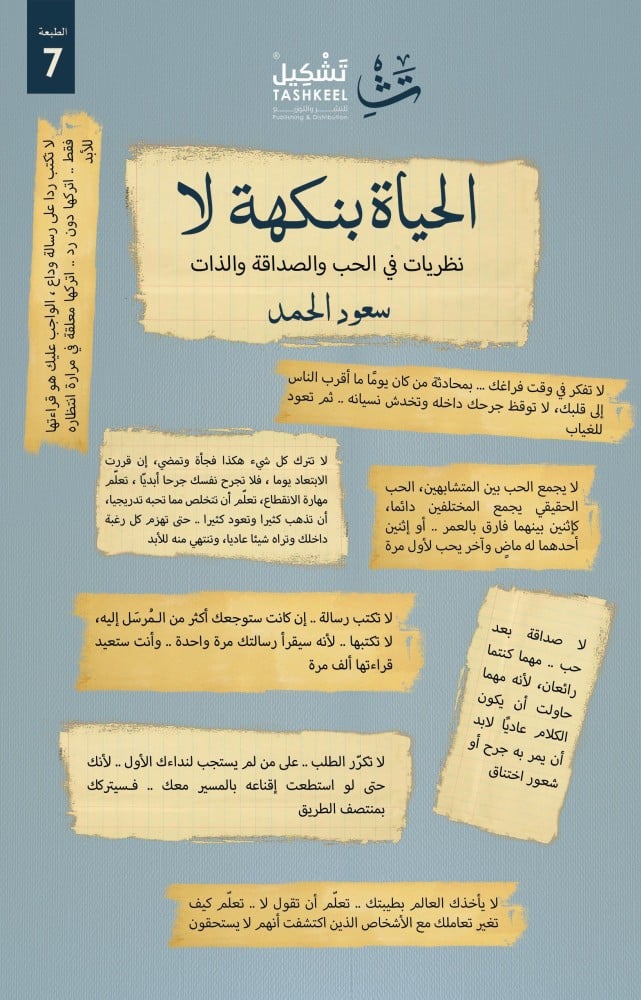 الطبعة
7
تَشْكِيل
TASHKEEL
للنشر والتوزيع
Publishing & Distribution
الحياة بنكهة لا
نظريات في الحب والصداقة والذات
سعود الحمد
لا تكتب ردا على رسالة وداع ، الواجب عليك هو قراءتها
فقط .. اتركها دون رد .. اتركها معلقة في مرارة انتظاره
للأبد
لا تفكر في وقت فراغك ... بمحادثة من كان يومًا ما أقرب الناس
إلى قلبك، لا توقظ جرحك داخله وتخدش نسيانه .. ثم تعود
للغياب
لا تترك كل شيء هكذا فجأة وتمضي، إن قررت
الابتعاد يوما ، فلا تجرح نفسك جرحا أبديًا ، تعلّم
مهارة الانقطاع، تعلّم أن تتخلص مما تحبه تدريجيا،
أن تذهب كثيرا وتعود كثيرا .. حتى تهزم كل رغبة
داخلك وتراه شيئا عاديا، وتنتهي منه للأبد
لا يجمع الحب بين المتشابهين، الحب
الحقيقي يجمع المختلفين دائما،
كإثنين بينهما فارق بالعمر .. أو إثنين
أحدهما له ماضٍ وآخر يحب لأول مرة
لا تكتب رسالة .. إن كانت ستوجعك أكثر من المُرسَل إليه،
لا تكتبها .. لأنه سيقرأ رسالتك مرة واحدة .. وأنت ستعيد
قراءتها ألف مرة
لا صداقة بعد
حب .. مهما كنتما
رائعان، لأنه مهما
حاولت أن يكون
الكلام عاديًا لابد
أن يمر به جرح أو
شعور اختناق
لا تكرّر الطلب .. على من لم يستجب لنداءك الأول .. لأنك
حتى لو استطعت إقناعه بالمسير معك .. فسيتركك
بمنتصف الطريق
لا يأخذك العالم بطيبتك .. تعلّم أن تقول لا .. تعلّم كيف
تغير تعاملك مع الأشخاص الذين اكتشفت أنهم لا يستحقون